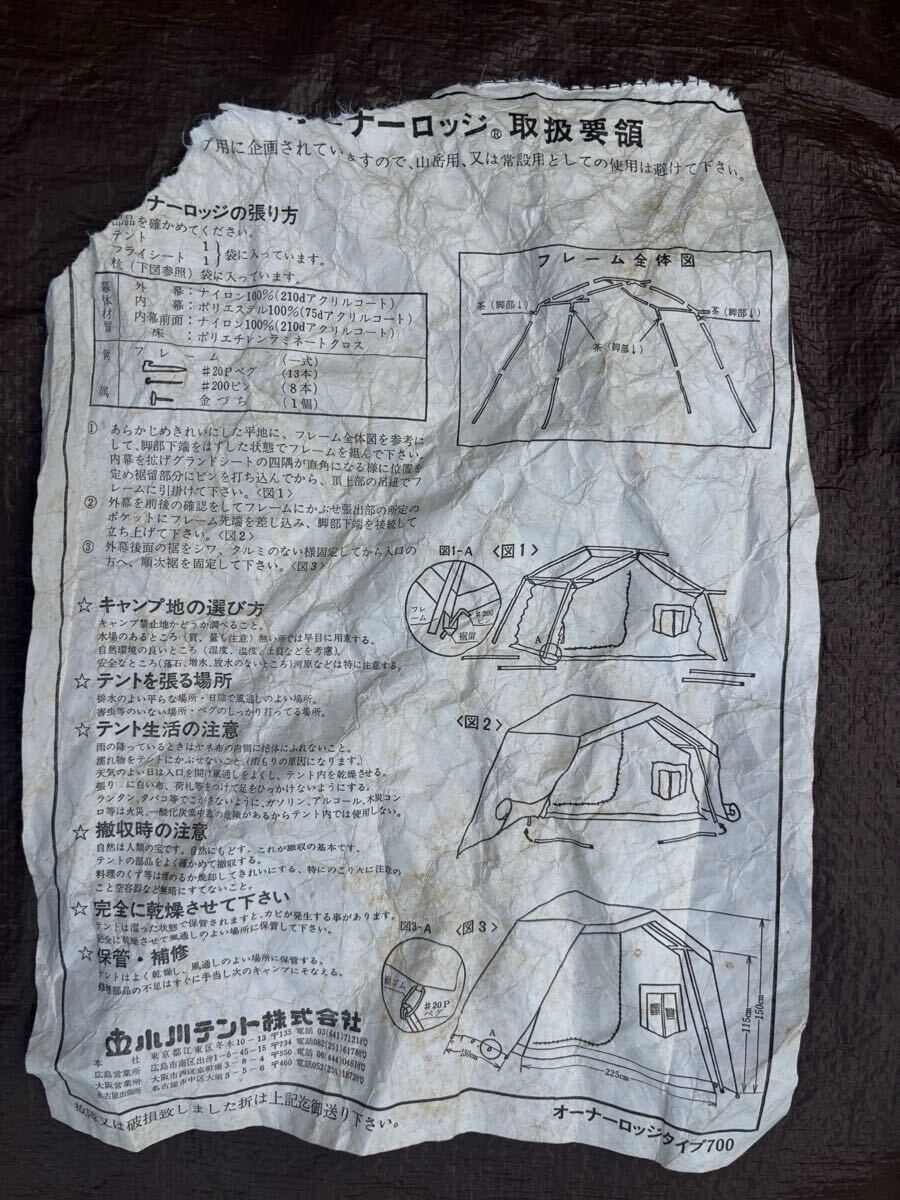 ーナーロッジ® 取扱要領
プ用に企画されていますので、山岳用、又は常設用としての使用は避けて下さい。
ナーロッジの張り方
部品を確かめてください。
テント 1
フライシート 1 } 袋に入っています。
杭(下図参照)袋に入っています。
幕体材質
外幕:ナイロン100%(210dアクリルコート)
内幕:ポリエステル100%(75dアクリルコート)
内幕前面:ナイロン100%(210dアクリルコート)
床:ポリエチレンラミネートクロス
属
フレーム (一式)
#20Pペグ (13本)
#200ピン (8本)
金づち (1個)
フレーム全体図
茶(脚部↓)
茶(脚部↓)
茶(脚部↓)
① あらかじめきれいにした平地に、フレーム全体図を参考に
して、脚部下端をはずした状態でフレームを組んで下さい。
内幕を拡げグランドシートの四隅が直角になる様に位置を
定め裾留部分にピンを打ち込んでから、頂上部の吊紐でフ
レームに引掛けて下さい。〈図1〉
② 外幕を前後の確認をしてフレームにかぶせ張出部の所定の
ポケットにフレーム先端を差し込み、脚部下端を接続して
立ち上げて下さい。〈図2〉
③ 外幕後面の裾をシワ、タルミのない様固定してから入口の
方へ、順次裾を固定して下さい。〈図3〉
図1-A 〈図1〉
フレーム
#200ピン
裾留
A
☆ キャンプ地の選び方
キャンプ禁止地かどうか調べること。
水場のあるところ(質、量も注意)無い所では早目に用意する。
自然環境の良いところ(湿度、温度、土質などを考慮)。
安全なところ(落石、増水、放水のないところ)河原などは特に注意する。
☆ テントを張る場所
排水のよい平らな場所・日陰で風通しのよい場所。
害虫等のいない場所・ペグのしっかり打ってる場所。
〈図2〉
☆ テント生活の注意
雨の降っているときはヤネ布の内側に絶体にふれないこと。
濡れ物をテントにかぶせないこと(雨もりの原因になります)。
天気のよい日は入口を開け風通しをよくし、テント内を乾燥させる。
張り に白い布、荷札等をつけて足をひっかけないようにする。
ランタン、タバコ等でこがさないように、ガソリン、アルコール、木炭コン
ロ等は火災、一酸化炭素中毒の危険があるからテント内では使用しない。
☆ 撤収時の注意
自然は人類の宝です。自然にもどす、これが撤収の基本です。
テントの部品をよく確かめて撤収する。
料理のくず等は埋めるか焼却してきれいにする、特にのこり火に注意の
こと空容器など無暗にすてないこと。
☆ 完全に乾燥させて下さい
テントは湿った状態で保管されますと、カビが発生する事があります。
完全に乾燥させて風通しのよい場所に保管して下さい。
☆ 保管・補修
テントはよく乾燥し、風通しのよい場所に保管する。
修理部品の不足はすぐに手当し次のキャンプにそなえる。
図3-A 〈図3〉
#20Pペグ
A
130cm
225cm
115cm
150cm
小川テント株式会社
本社 東京都江東区冬木10-13 〒135 電話 03(641)7121㈹
広島営業所 広島市南区出汐1-6-45-15 〒734 電話082(251)6178㈹
大阪営業所 大阪市西区京町堀3-8-4 〒550 電話 06(444)0461㈹
名古屋出張所 名古屋市中区大須3-5-6 〒460 電話052(251)1872㈹
故障又は破損致しました折は上記迄御送り下さい。
オーナーロッジタイプ700